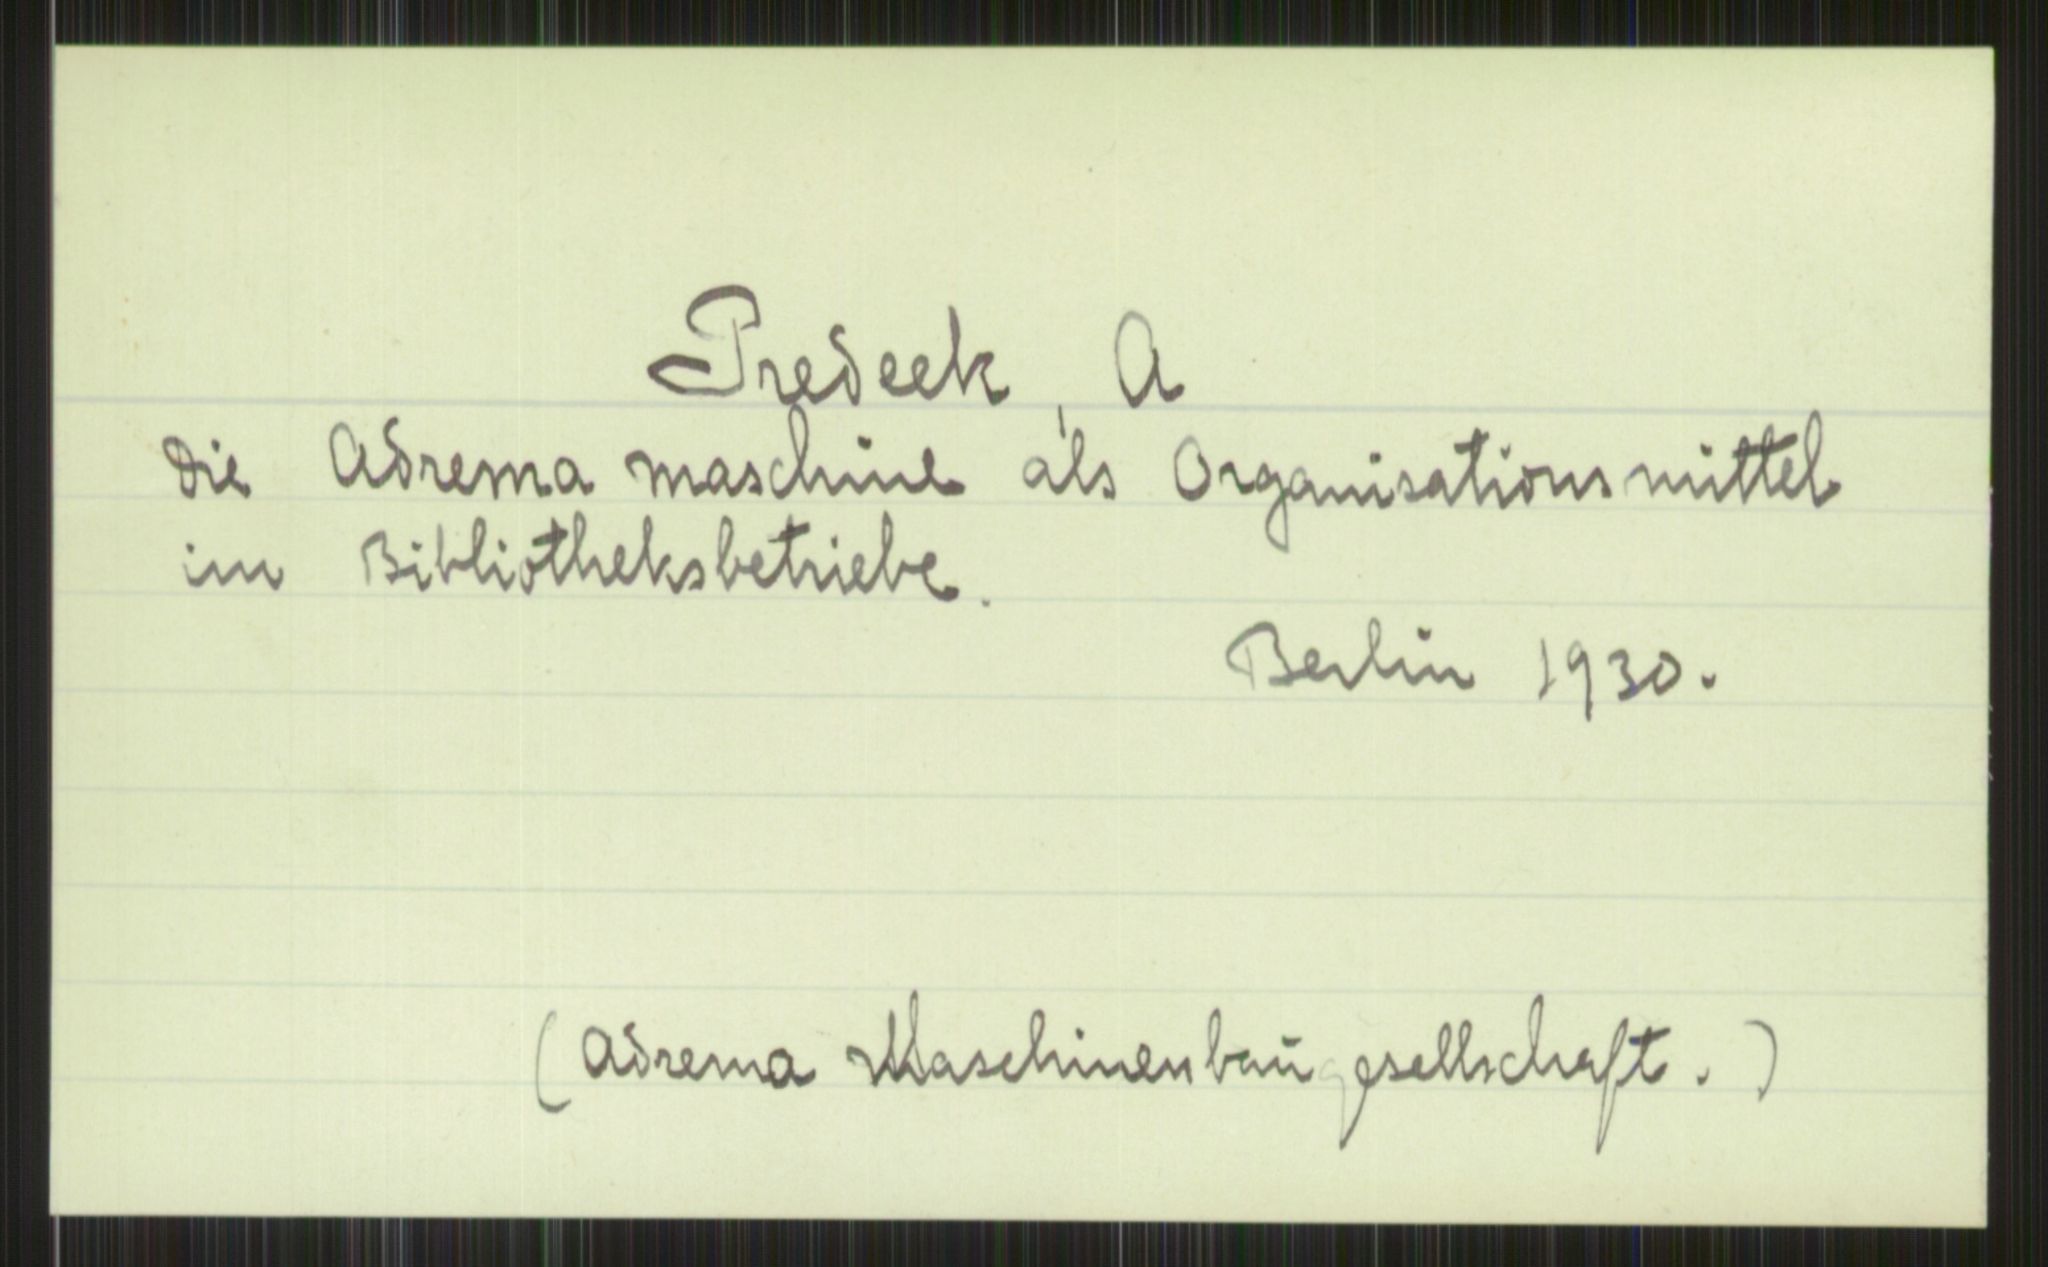 Predeek, A
Die Adrema maschine als Organisationsmittel
im Bibliotheksbetriebe.
Berlin 1930.
(Adrema Maschinenbaugesellschaft.)